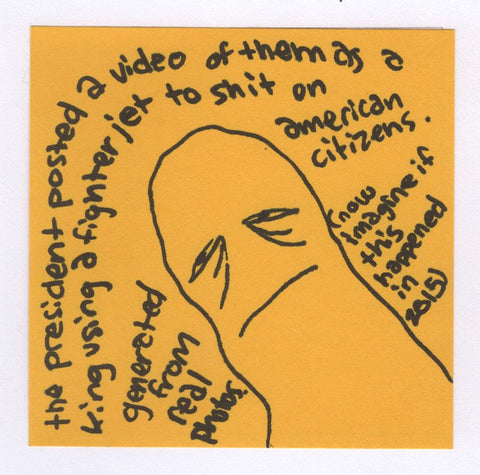 the president posted a video of them as a
king using a fighter jet to shit on
american
citizens.
(now
imagine if
this
happened
in
2015)
generated
from
real
photos.